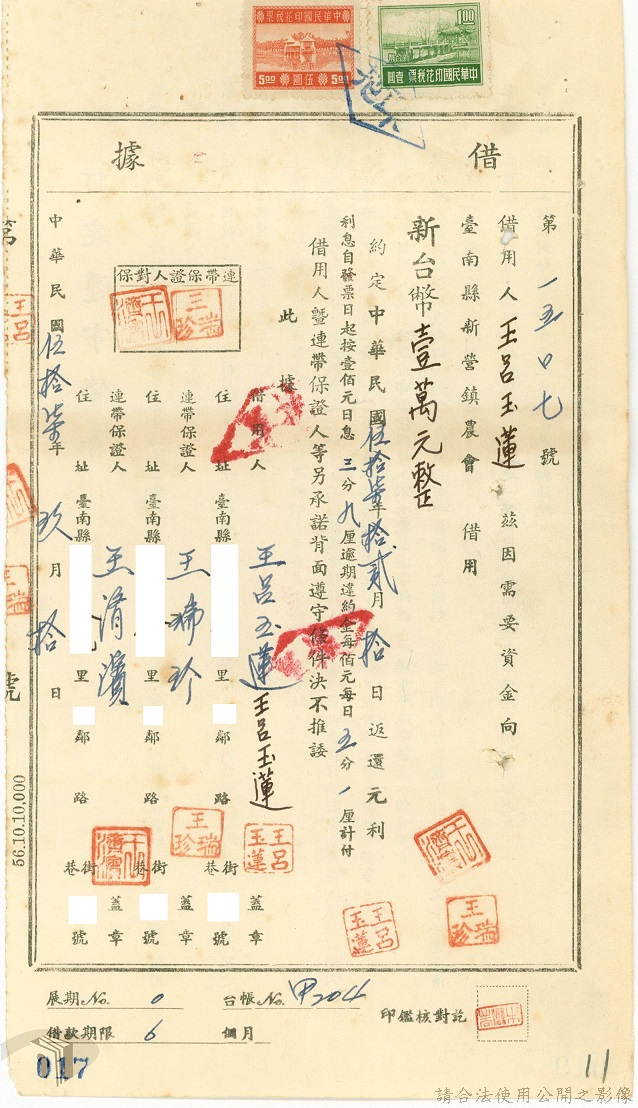 中華民國印花稅票
5.00 伍圓 5.00
1.00
中華民國印花稅票 壹圓
借據
第一五〇七號
借用人王呂玉蓮 茲因需要資金向
臺南縣新營鎮農會 借用
新台幣壹萬元整
約定中華民國伍拾柒年拾貳月拾日返還元利
利息自發票日起按壹佰元日息三分九厘逾期違約金每佰元每日五分一厘計付
借用人暨連帶保證人等另承諾背面遵守條件決不推諉
此據
連帶保證人對保
王濟濱
王瑞珍
借用人 王呂玉蓮 王呂玉蓮
王呂玉蓮
住址 臺南縣 里 鄰 路 街巷 號 蓋章
連帶保證人 王瑞珍
王瑞珍
住址 臺南縣 里 鄰 路 街巷 號 蓋章
連帶保證人 王濟濱
王濟濱
住址 臺南縣 里 鄰 路 街巷 號
中華民國伍拾柒年玖月拾日
王濟濱
王瑞珍
王呂玉蓮
萬
王呂
王瑞
號
56.10.10,000
展期No. 0
台帳No. 甲204
借款期限 6 個月
印鑑核對訖
017
11
請合法使用公開之影像